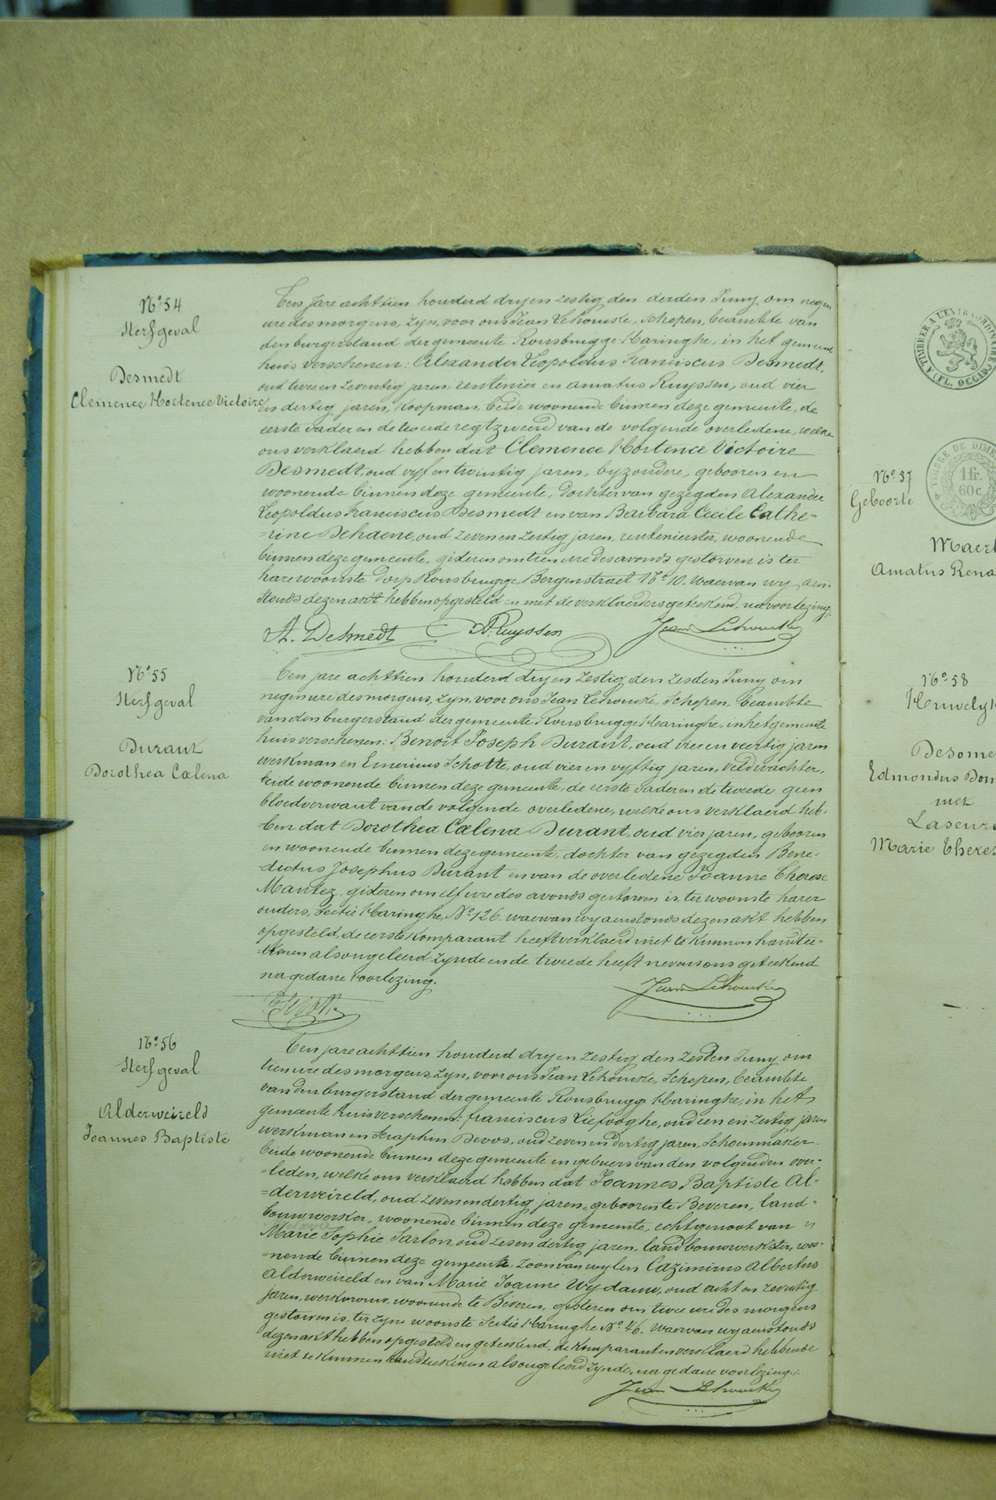 N° 54
Sterfgeval
Desmedt
Clemence Hortence Victoire
Een jare achttien honderd dry en zestig den derden Juny, om negen
ure des morgens, zyn, voor ons Jean Lehoucke, Schepen, beambte van
den burgerstand der gemeente Rousbrugge Haringhe, in het gemeente
huis verschenen: Alexander Leopoldus Franciscus Desmedt,
oud twee en zeventig jaren, rentenier en Amatus Ruyssen, oud vier
en dertig jaren, koopman, beide woonende binnen deze gemeente, de
eerste vader en de tweede regtzweerd van de volgende overledene, welke
ons verklaerd hebben dat Clemence Hortence Victoire
Desmedt, oud vyf en twintig jaren, byzondere, gebooren en
woonende binnen deze gemeente, dochter van gezegden Alexander
Leopoldus Franciscus Desmedt en van Barbara Cecile Cathe=
=rine Dehaene, oud zeven en zestig jaren, rentenierster, woonende
binnen deze gemeente, gisteren om tien ure des avonds gestorven is ter
hare woonste dorp Rousbrugge Bergenstraet N° 10. Waervan wy aen-
stonds dezen akt hebben opgesteld en met de verklaerders geteekend, na voorlezing.
A. Desmedt A. Ruyssen Jean Lehoucke
N° 55
Sterfgeval
Durant
Dorothea Cœlena
Een jare achttien honderd dry en zestig, den zesden Juny om
negen ure des morgens, zyn, voor ons Jean Lehoucke, Schepen, beambte
van den burgerstand der gemeente Rousbrugge Haringhe, in het gemeente
huis verschenen: Benoit Joseph Durant, oud vier en veertig jaren
werkman en Emerinus Schotte, oud vier en vyftig jaren, veldwachter,
beide woonende binnen deze gemeente, de eerste vader en de tweede geen
bloedverwant van de volgende overledene, welke ons verklaerd heb-
ben dat Dorothea Cœlena Durant, oud vier jaren, gebooren
en woonende binnen deze gemeente, dochter van gezegden Bene-
dictus Josephus Durant en van de overledene Joanne Therese
Mantez, gisteren om elf ure des avonds gestorven is, ter woonste harer
ouders, Sectie Haringhe, N° 126. waervan wy aenstonds dezen akt hebben
opgesteld, de eerste komparant heeft verklaerd niet te kunnen handtee-
kenen als ongeleerd zynde en de tweede heeft nevens ons geteekend
na gedane voorlezing.
Jean Lehoucke
N° 56
Sterfgeval
Alderweireld
Joannes Baptiste
Een jare achttien honderd dry en zestig den zesden Juny, om
tien ure des morgens zyn, voor ons Jean Lehoucke, Schepen, beambte
van den burgerstand der gemeente Rousbrugge Haringhe, in het
gemeente huis verschenen: Franciscus Liefooghe, oud een en zestig jaren
werkman en Seraphin Devos, oud zeven en dertig jaren, Schoenmaker
beide woonende binnen deze gemeente en gebuers van den volgenden over-
=leden, welke ons verklaerd hebben dat Joannes Baptiste Al-
=derweireld, oud zeven en dertig jaren, gebooren te Beveren, land-
bouwwerker, woonende binnen deze gemeente, echtgenoot van
Marie Sophie Sarlon, oud zes en dertig jaren, landbouwwerkster, woo-
=nende binnen deze gemeente, zoon van wylen Cazimirus Albertus
Alderweireld en van Marie Joanne Wydauw, oud acht en zeventig
jaren, werkvrouw, woonende te Beveren, gisteren om twee ure des morgens
gestorven is, ter zyne woonste Sectie Haringhe N° 46. Waervan wy aenstonds
dezen akt hebben opgesteld en geteekend, de komparanten verklaerd hebbende
niet te kunnen handteekenen als ongeleerd zynde, na gedane voorlezing.
Jean Lehoucke
TIMBRE A L'EXTRAORDINAIRE
(FL. OCCID.)
TIMBRE DE DIME
1 fr.
60 c.
N° 57
Geboorte
Maert
Amatus Rena
N° 58
Huwelyk
Desome
Edmondus Dom
met
Laseure
Marie Theres